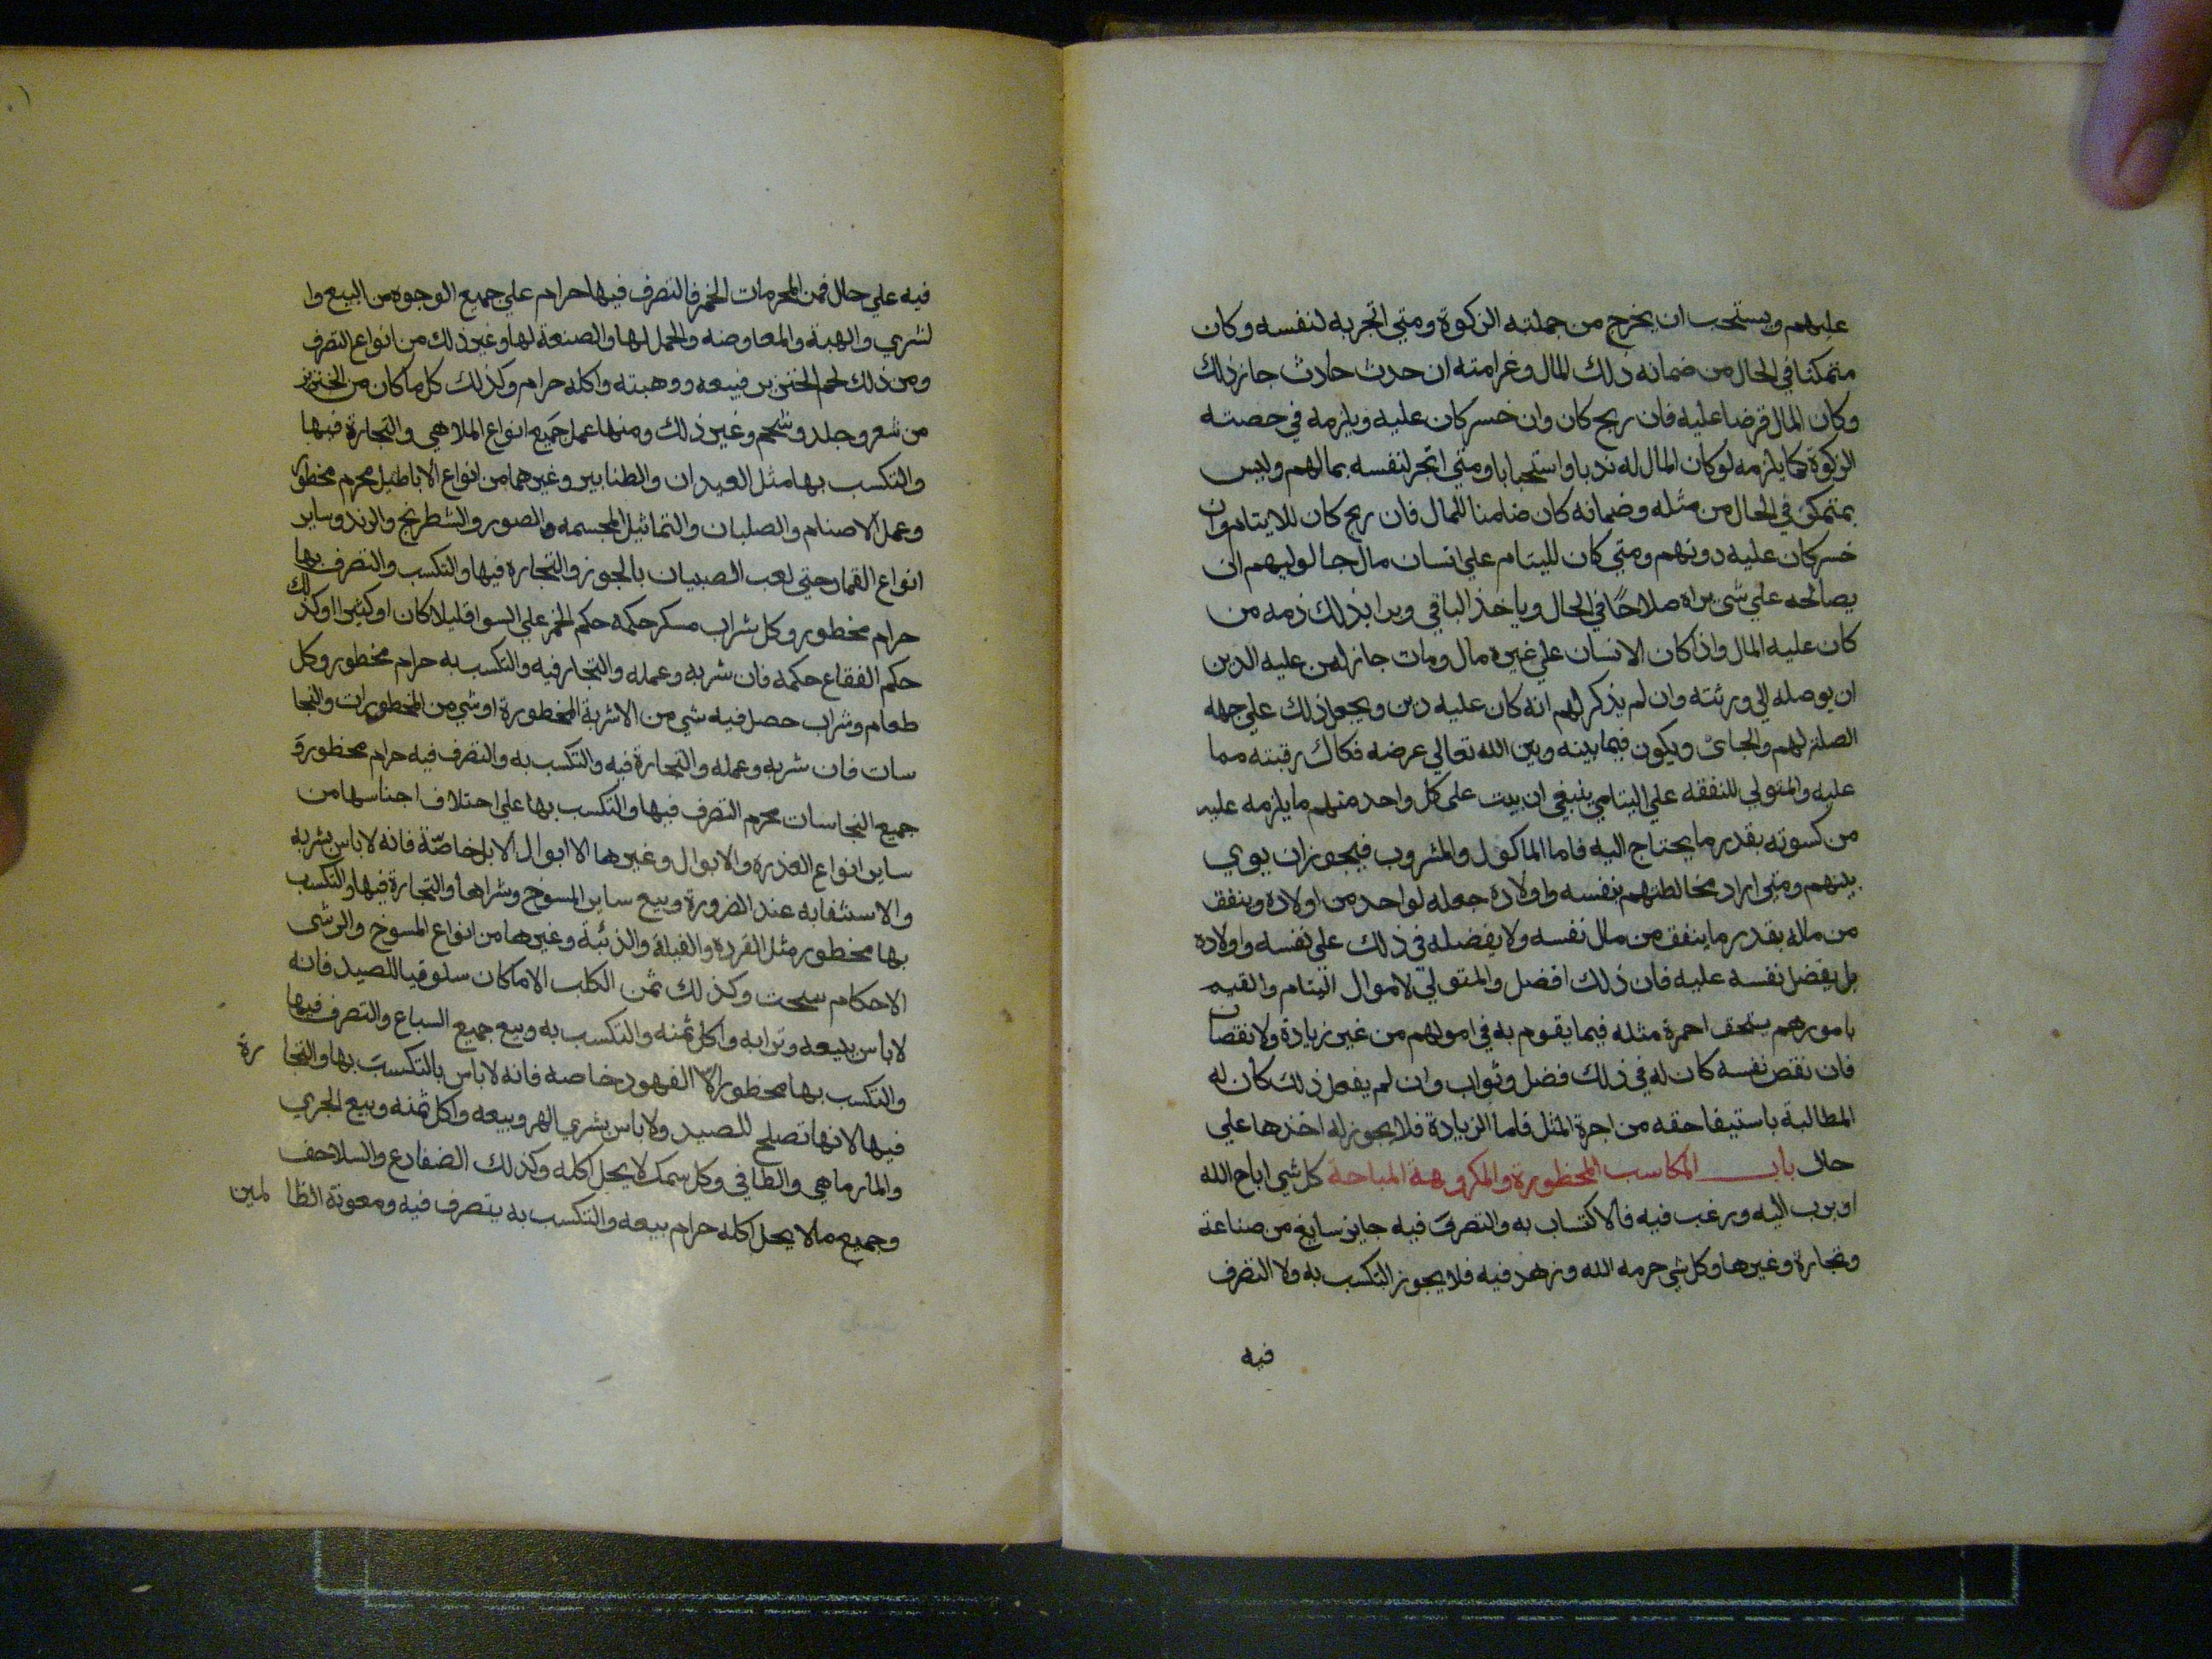 عليهم ويستحب ان يخرج من جملته الزكوة ومتي اتجر به لنفسه وكان
متمكنا في الحال من ضمانه ذلك المال وغرامته ان حدث حادث جاز ذلك
وكان المال قرضا عليه فان ربح كان وان خسر كان عليه ويلزمه في حصته
الزكوة كما يلزمه لو كان المال له ندبا واستحبابا ومتي اتجر لنفسه بمالهم وليس
بمتمكن في الحال من مثله وضمانه كان ضامنا للمال فان ربح كان للايتام وان
خسر كان عليه دونهم ومتي كان لليتام علي انسان مال جا لوليهم ان
يصالحه علي شي يراه صلاحًا في الحال وياخذ الباقي وبرا بذلك ذمه من
كان عليه المال واذا كان الانسان علي غيره مال ومات جاز لمن عليه الدين
ان يوصله الي ورثته وان لم يذكر لهم انه كان عليه دين ويجعل ذلك علي جهه
الصلة لهم والجائ ويكون فيما بينه وبين الله تعالي عرضه فكاك رقبته مما
عليه والمتولي للنفقه علي اليتامي ينبغي ان يبت على كل واحد منهم ما يلزمه عليه
من كسوته بقدر ما يحتاج اليه فاما الماكول والمشروب فيجوز ان يوي
بينهم ومتي اراد مخالطتهم بنفسه واولاده جعله لواحد من اولاده وينفق
من ماله بقدر ما ينفق من مال نفسه ولا يفضله في ذلك علي نفسه واولاده
بل يفضل نفسه عليه فان ذلك افضل والمتولي لاموال اليتام والقيم
بامورهم يستحق اجرة مثله فيما يقوم به في امولهم من غير زيادة ولا نقصان
فان نقص نفسه كان له في ذلك فضل وثواب وان لم يفعل ذلك كان له
المطالبة باستيفا حقه من اجرة المثل فاما الزيادة فلا يجوز له اخذها علي
حال باب المكاسب المحظورة والمكروهة المباحة كل شي اباح الله
او ندب اليه ورغب فيه فالاكتساب به والتصرف فيه جايز سايغ من صناعة
وتجارة وغيرها وكل شي حرمه الله وزهد فيه فلا يجوز التكسب به ولا التصرف
فيه
فيه علي حال فمن المحرمات الخمر فالتصرف فيها حرام علي جميع الوجوه من البيع وا
لشري والهبة والمعاوضه والحمل لها والصنعة لها وغير ذلك من انواع التصرف
ومن ذلك لحم الخنزير فبيعه ووهبته واكله حرام وكذلك كل ما كان من الخنزير
من شعر وجلد وشحم وغير ذلك ومنها عمل جميع انواع الملاهي والتجارة فيها
والتكسب بها مثل العيدان والطنابير وغيرهما من انواع الاباطيل محرم محظور
وعمل الاصنام والصلبان والتماثيل المجسمه والصور والشطرنج والرند وساير
انواع القمار حتي لعب الصبيان بالجوز والتجاره فيها والتكسب والتصرف بها
حرام محظور وكل شراب مسكر حكمه حكم الخمر علي السوا قليلا كان او كثيرا اوكذلك
حكم الفقاع حكمه فان شربه وعمله والتجار فيه والتكسب به حرام محظور وكل
طعام وشراب حصل فيه شي من الاشربة المحظورة او شي من المحظورات والنجا
سات فان شربه وعمله والتجارة فيه والتكسب به والتصرف فيه حرام محظور و
جميع النجاسات محرم التصرف فيها والتكسب بها علي اختلاف اجناسها من
ساير انواع العذره والابوال وغيرهما الا ابوال الابل خاصّة فانه لا باس بشربه
والاستشفا به عند الضرورة وبيع ساير المسوخ وشراها والتجارة فيها والتكسب
بها محظور مثل القردة والفيلة والذئبة وغيرها من انواع المسوخ والرشي
الاحكام سحت وكذلك ثمن الكلب الا ما كان سلوقيا للصيد فانه
لا باس ببيعه وترابه واكل ثمنه والتكسب به وبيع جميع السباع والتصرف فيها
والتكسب بها محظور الا الفهود خاصه فانه لا باس بالتكسب بها والتجارة
فيها لانها تصلح للصيد ولا باس بشري الهر وبيعه واكل ثمنه وبيع الجري
والمارماهي والطافي وكل سمك لا يحل اكله وكذلك الضفادع والسلاحف
وجميع ما لا يحل اكله حرام بيعه والتكسب به يتصرف فيه ومعونة الظالمين